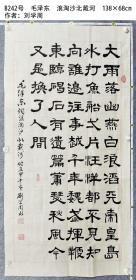 8242号 毛泽东 浪淘沙北戴河 138×68cm
作者：刘学周
大雨落幽燕白浪滔天秦皇島
外打魚船一片汪洋都不見知
向誰邊往事越千年魏武揮鞭
東臨碣石有遺篇蕭瑟秋風今
又是換了人間
毛澤東詞浪淘沙北戴河